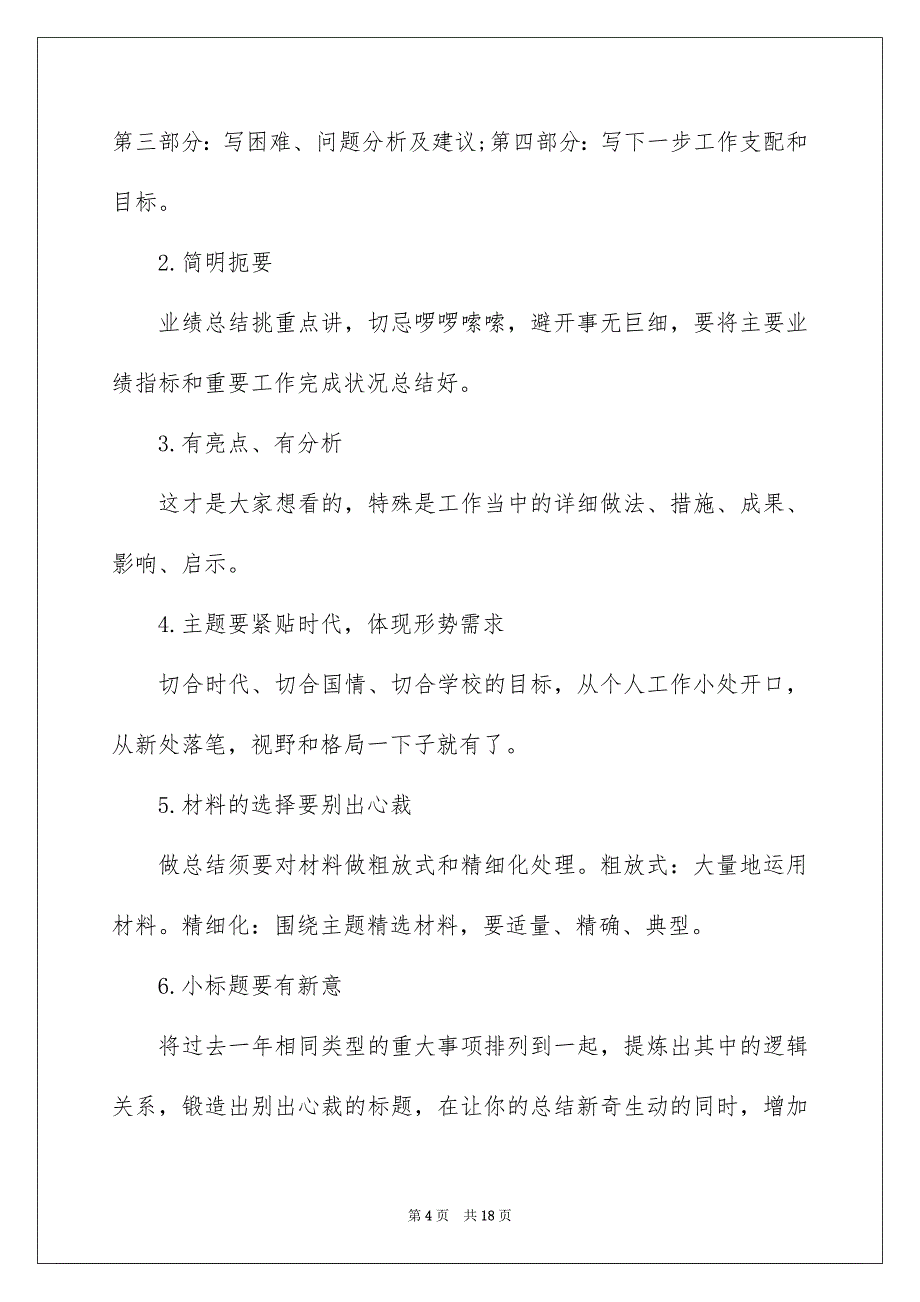 第三部分：写困难、问题分析及建议;第四部分：写下一步工作支配和
目标。
2.简明扼要
业绩总结挑重点讲，切忌啰啰嗦嗦，避开事无巨细，要将主要业
绩指标和重要工作完成状况总结好。
3.有亮点、有分析
这才是大家想看的，特殊是工作当中的详细做法、措施、成果、
影响、启示。
4.主题要紧贴时代，体现形势需求
切合时代、切合国情、切合学校的目标，从个人工作小处开口，
从新处落笔，视野和格局一下子就有了。
5.材料的选择要别出心裁
做总结须要对材料做粗放式和精细化处理。粗放式：大量地运用
材料。精细化：围绕主题精选材料，要适量、精确、典型。
6.小标题要有新意
将过去一年相同类型的重大事项排列到一起，提炼出其中的逻辑
关系，锻造出别出心裁的标题，在让你的总结新奇生动的同时，增加
第 4 页 共 18 页